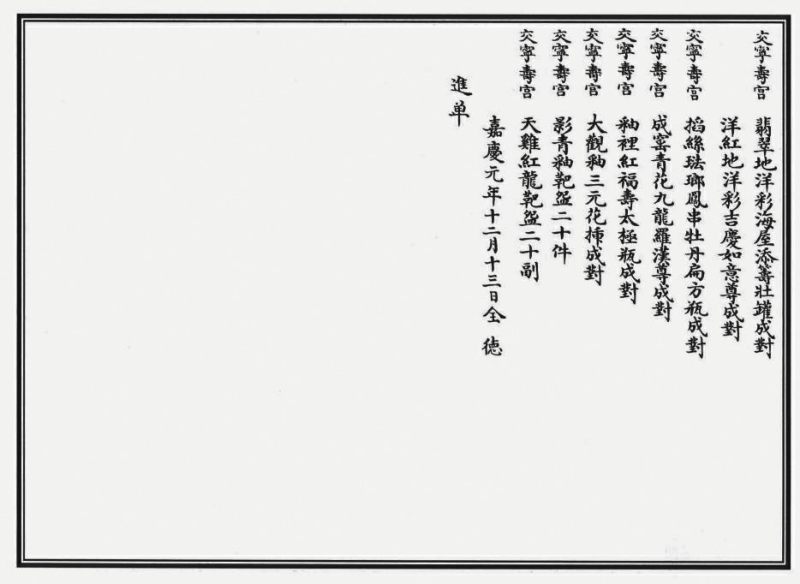 交寧壽宮 翡翠地洋彩海屋添籌壯罐成對
洋紅地洋彩吉慶如意尊成對
交寧壽宮 掐絲珐瑯鳳串牡丹扁方瓶成對
交寧壽宮 成窯青花九龍羅漢尊成對
交寧壽宮 釉裡紅福壽太極瓶成對
交寧壽宮 大觀釉三元花揷成對
交寧壽宮 影青釉靶盌二十件
交寧壽宮 天雞紅龍靶盌二十副
嘉慶元年十二月十三日全德
進单